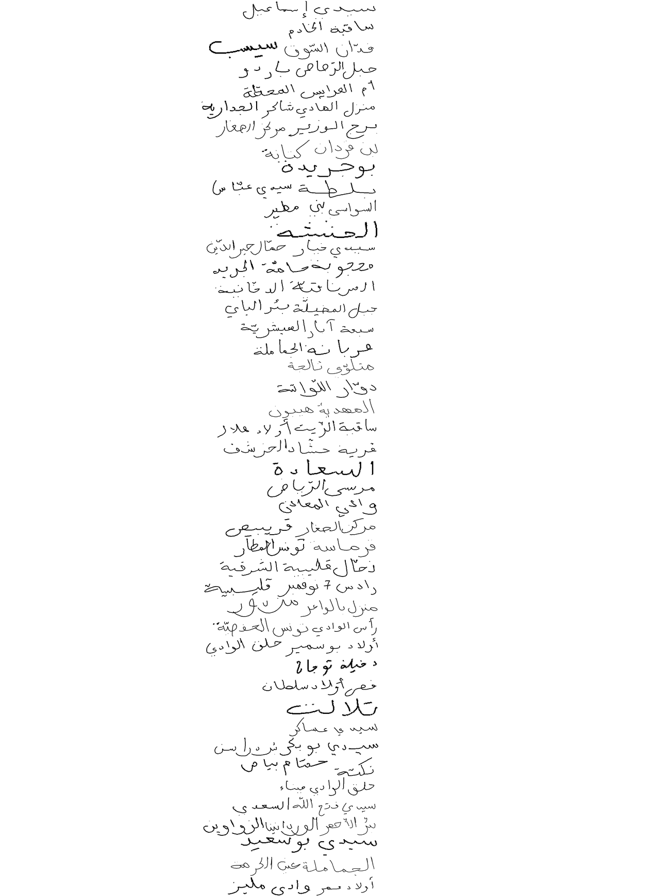 سيدي إسماعيل
ساقية الخادم
فدّان السّوق سيسب
جبل الرّصاص باردو
أم العرايس المعقلة
منزل الهادي شاكر الجدارية
برج الوزير مركز الصغار
بن قردان كتانة
بوجريدة
بلطة سيدي عبّاس
السواسي بني مطير
الحنشة
سيدي خيار حمّال خير الدّين
محجوبة حامة الجريد
السرنافتيّة الدخانية
جبل المضيلّة بئر الباي
سبعة آبار العيشريّة
عربانة الجماملة
متلوّي تالعة
دوّار اللّواتة
المهدية هبيون
ساقية الزّيت أولاد علال
قرية حشّاد الحرشف
السعادة
مرسى الرّياض
وادي المعافي
مركز الصغار قريبص
فرماسة تونس المطار
دخّال قليبية الشرقية
رادس 7 نوفمبر قليبية
منزل بالواعر
رأس الوادي تونس الحفصيّة
أولاد بوسمير حلق الوادي
دخيلة توجان
قصر أولاد سلطان
تلالت
سيدي عساكر
سيدي بوبكر
نكتة حمّام بياض
حلق الوادي ميناء
سيدي فتح الله السعدي
بئر الأحمر الزواوين
سيدي بوسعيد
الجماملة عين الكرمة
أولاد عمر وادي مليز